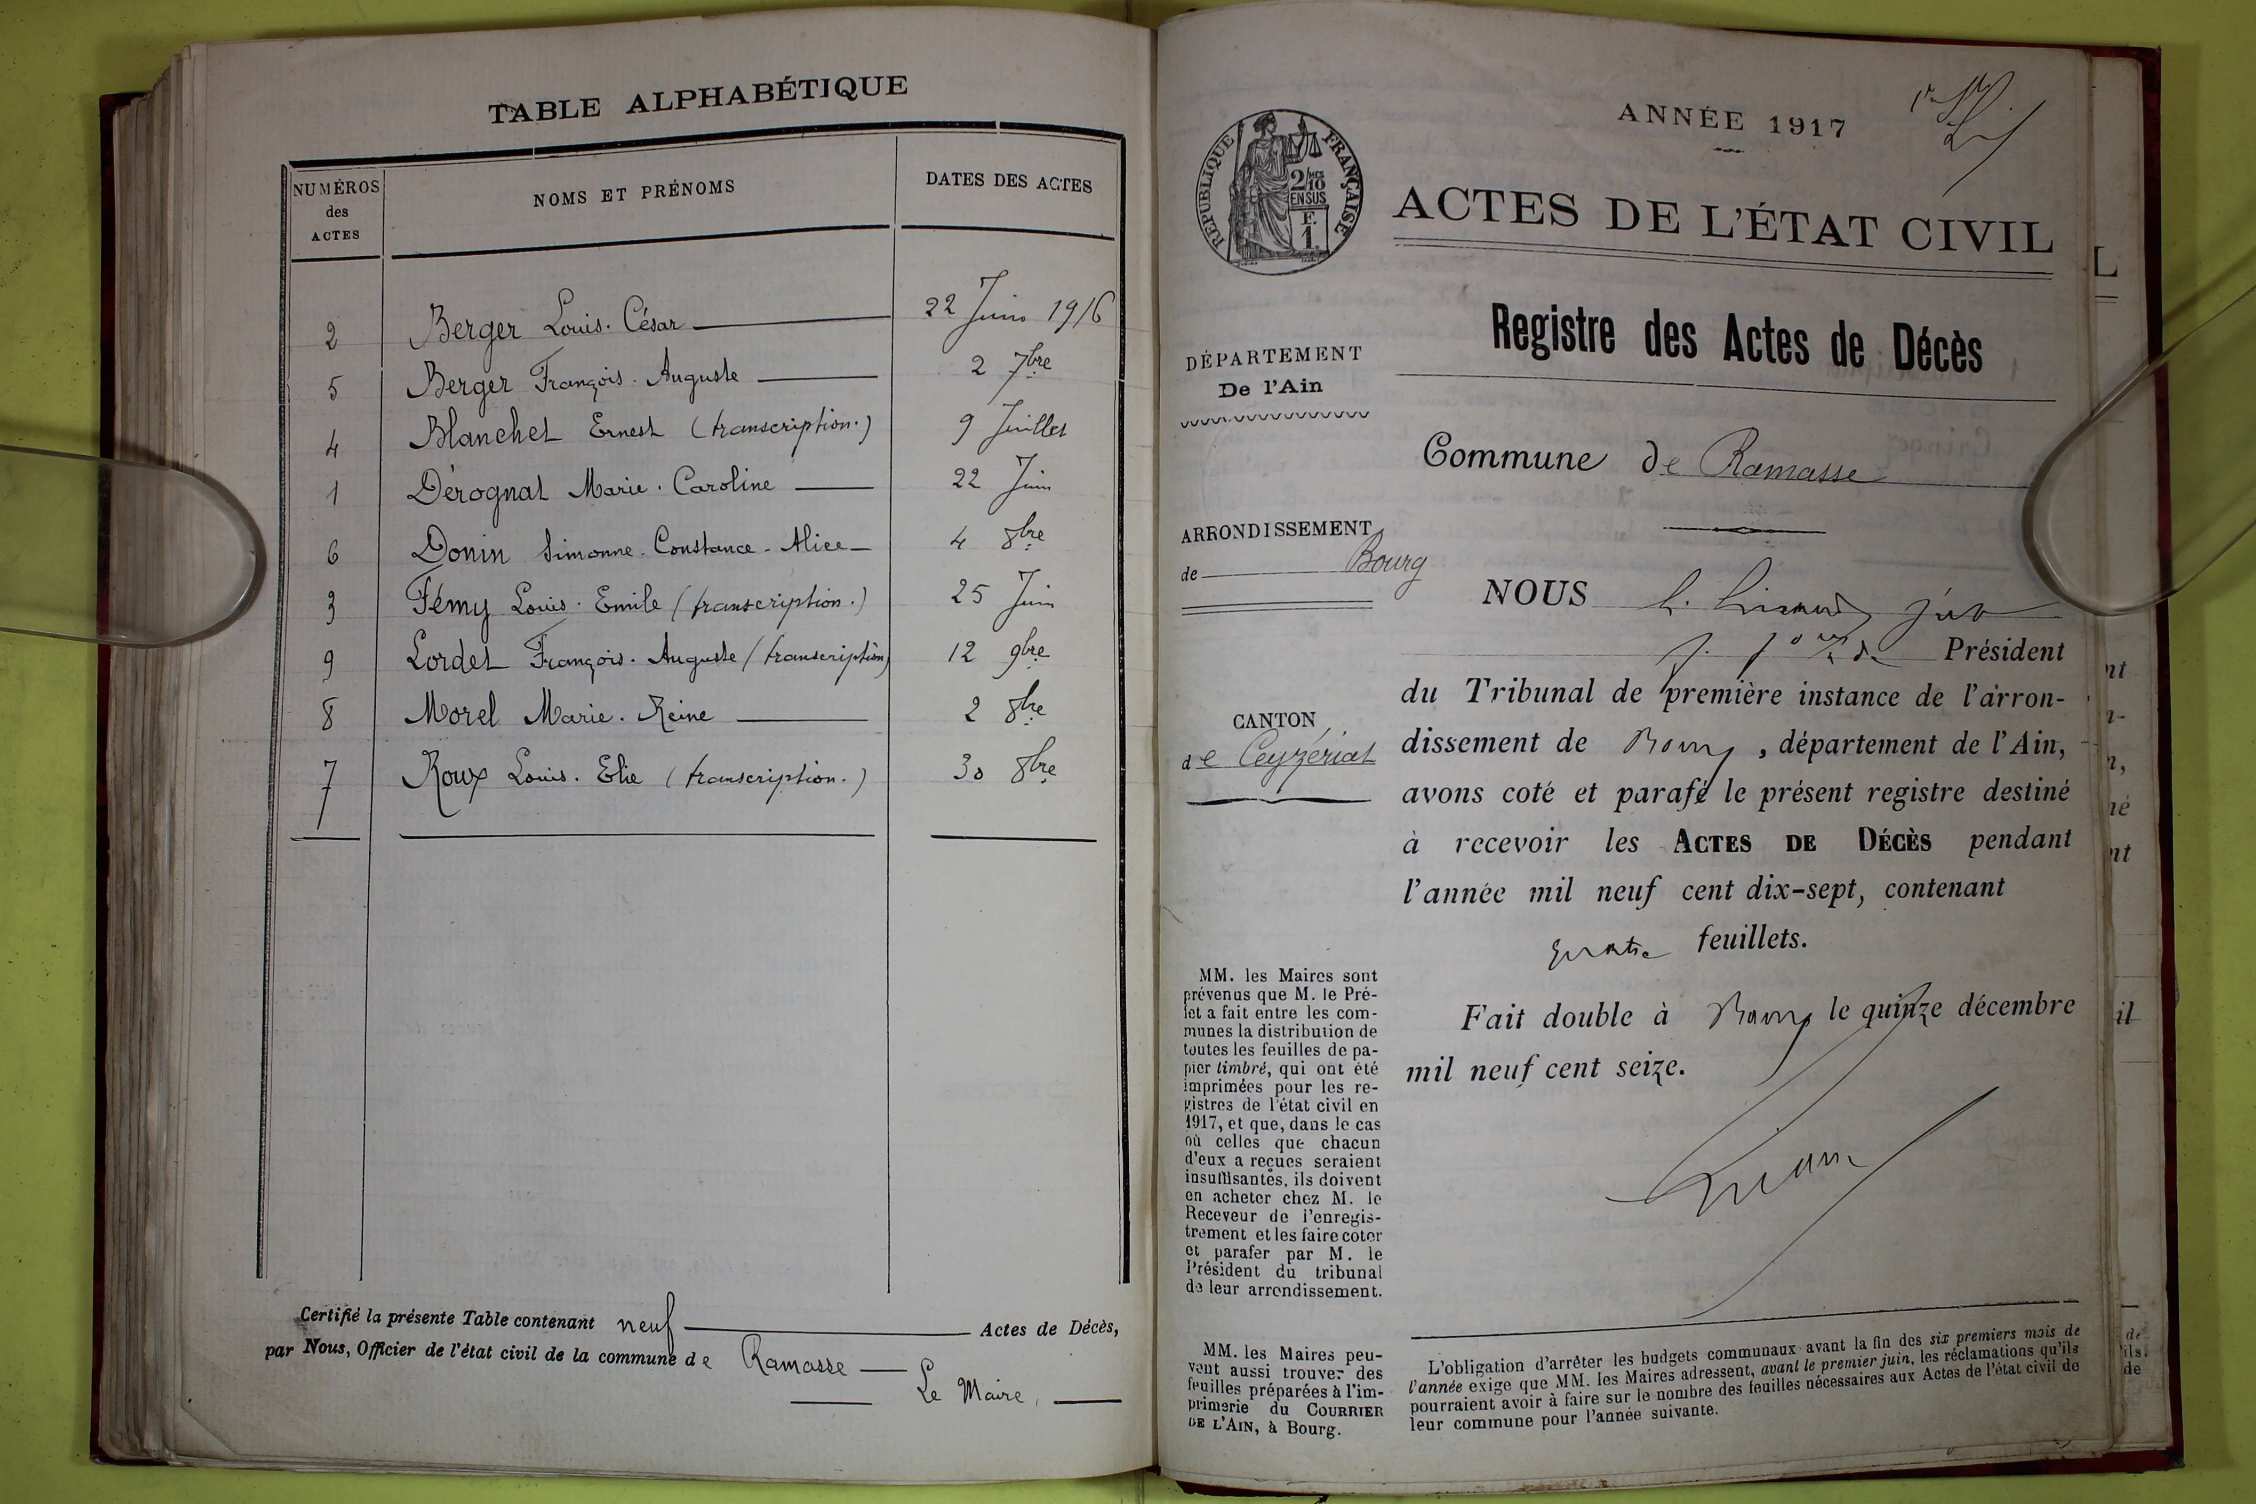 TABLE ALPHABÉTIQUE
NUMÉROS
des
ACTES
NOMS ET PRÉNOMS
DATES DES ACTES
2 Berger Louis. César 22 Juin 1916
5 Berger François. Auguste 2 7bre
4 Blanchet Ernest (transcription.) 9 Juillet
1 Dérognat Marie. Caroline 22 Juin
6 Donin Simonne. Constance. Alice 4 8bre
3 Fémy Louis. Emile (transcription.) 25 Juin
9 Lordet François. Auguste (transcription) 12 9bre
8 Morel Marie. Reine 2 8bre
7 Roux Louis. Elie (transcription.) 30 8bre
Certifié la présente Table contenant neuf Actes de Décès,
par Nous, Officier de l'état civil de la commune de Ramasse
Le Maire,
ANNÉE 1917
RÉPUBLIQUE FRANÇAISE
2/10 MES
EN SUS
F.
1.
ACTES DE L'ÉTAT CIVIL
Registre des Actes de Décès
DÉPARTEMENT
De l'Ain
Commune de Ramasse
ARRONDISSEMENT
de Bourg
CANTON
de Ceyzériat
NOUS
Président
du Tribunal de première instance de l'arron-
dissement de Bourg, département de l'Ain,
avons coté et parafé le présent registre destiné
à recevoir les ACTES DE DÉCÈS pendant
l'année mil neuf cent dix-sept, contenant
quatre feuillets.
Fait double à Bourg le quinze décembre
mil neuf cent seize.
MM. les Maires sont
prévenus que M. le Pré-
fet a fait entre les com-
munes la distribution de
toutes les feuilles de pa-
pier timbré, qui ont été
imprimées pour les re-
gistres de l'état civil en
1917, et que, dans le cas
où celles que chacun
d'eux a reçues seraient
insuffisantes, ils doivent
en acheter chez M. le
Receveur de l'enregis-
trement et les faire coter
et parafer par M. le
Président du tribunal
de leur arrondissement.
MM. les Maires peu-
vent aussi trouver des
feuilles préparées à l'im-
primerie du COURRIER
DE L'AIN, à Bourg.
L'obligation d'arrêter les budgets communaux avant la fin des six premiers mois de
l'année exige que MM. les Maires adressent, avant le premier juin, les réclamations qu'ils
pourraient avoir à faire sur le nombre des feuilles nécessaires aux Actes de l'état civil de
leur commune pour l'année suivante.